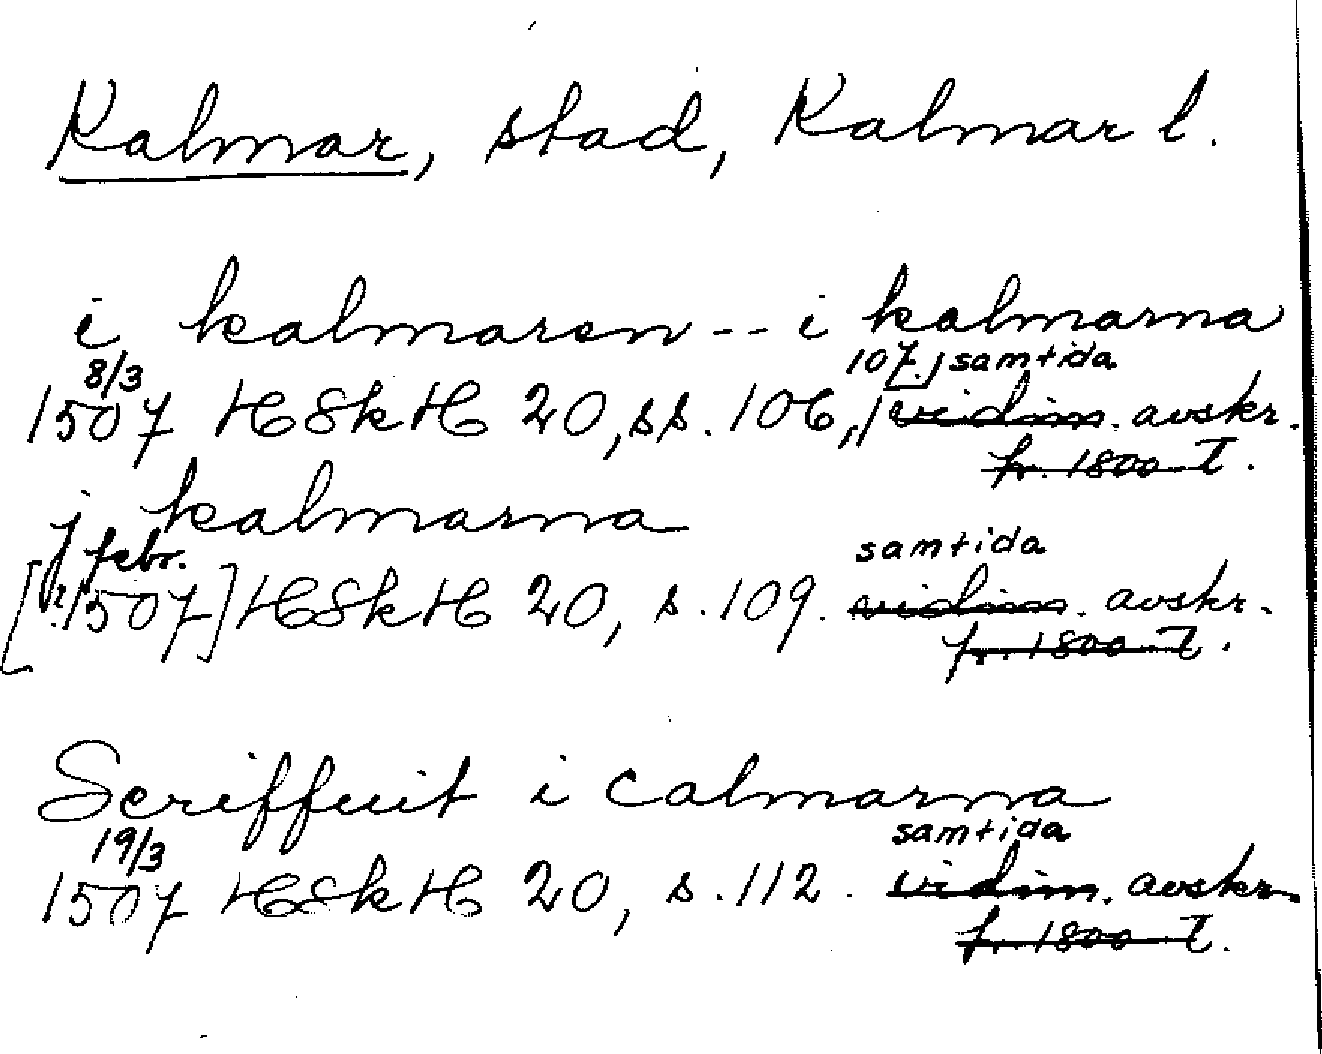 Kalmar, stad, Kalmar l.
i kalmaren -- i kalmarna
8/3 107.j samtida
1507 HSkH 20, ss. 106, vidim. avskr.
fr. 1800-T.
j kalmarna
febr. samtida
1507] HSkH 20, s. 109. vidim. avskr.
fr. 1800-T.
Scriffuit i calmarna
19/3 samtida
1507 HSkH 20, s. 112. vidim. avskr.
fr. 1800-T.